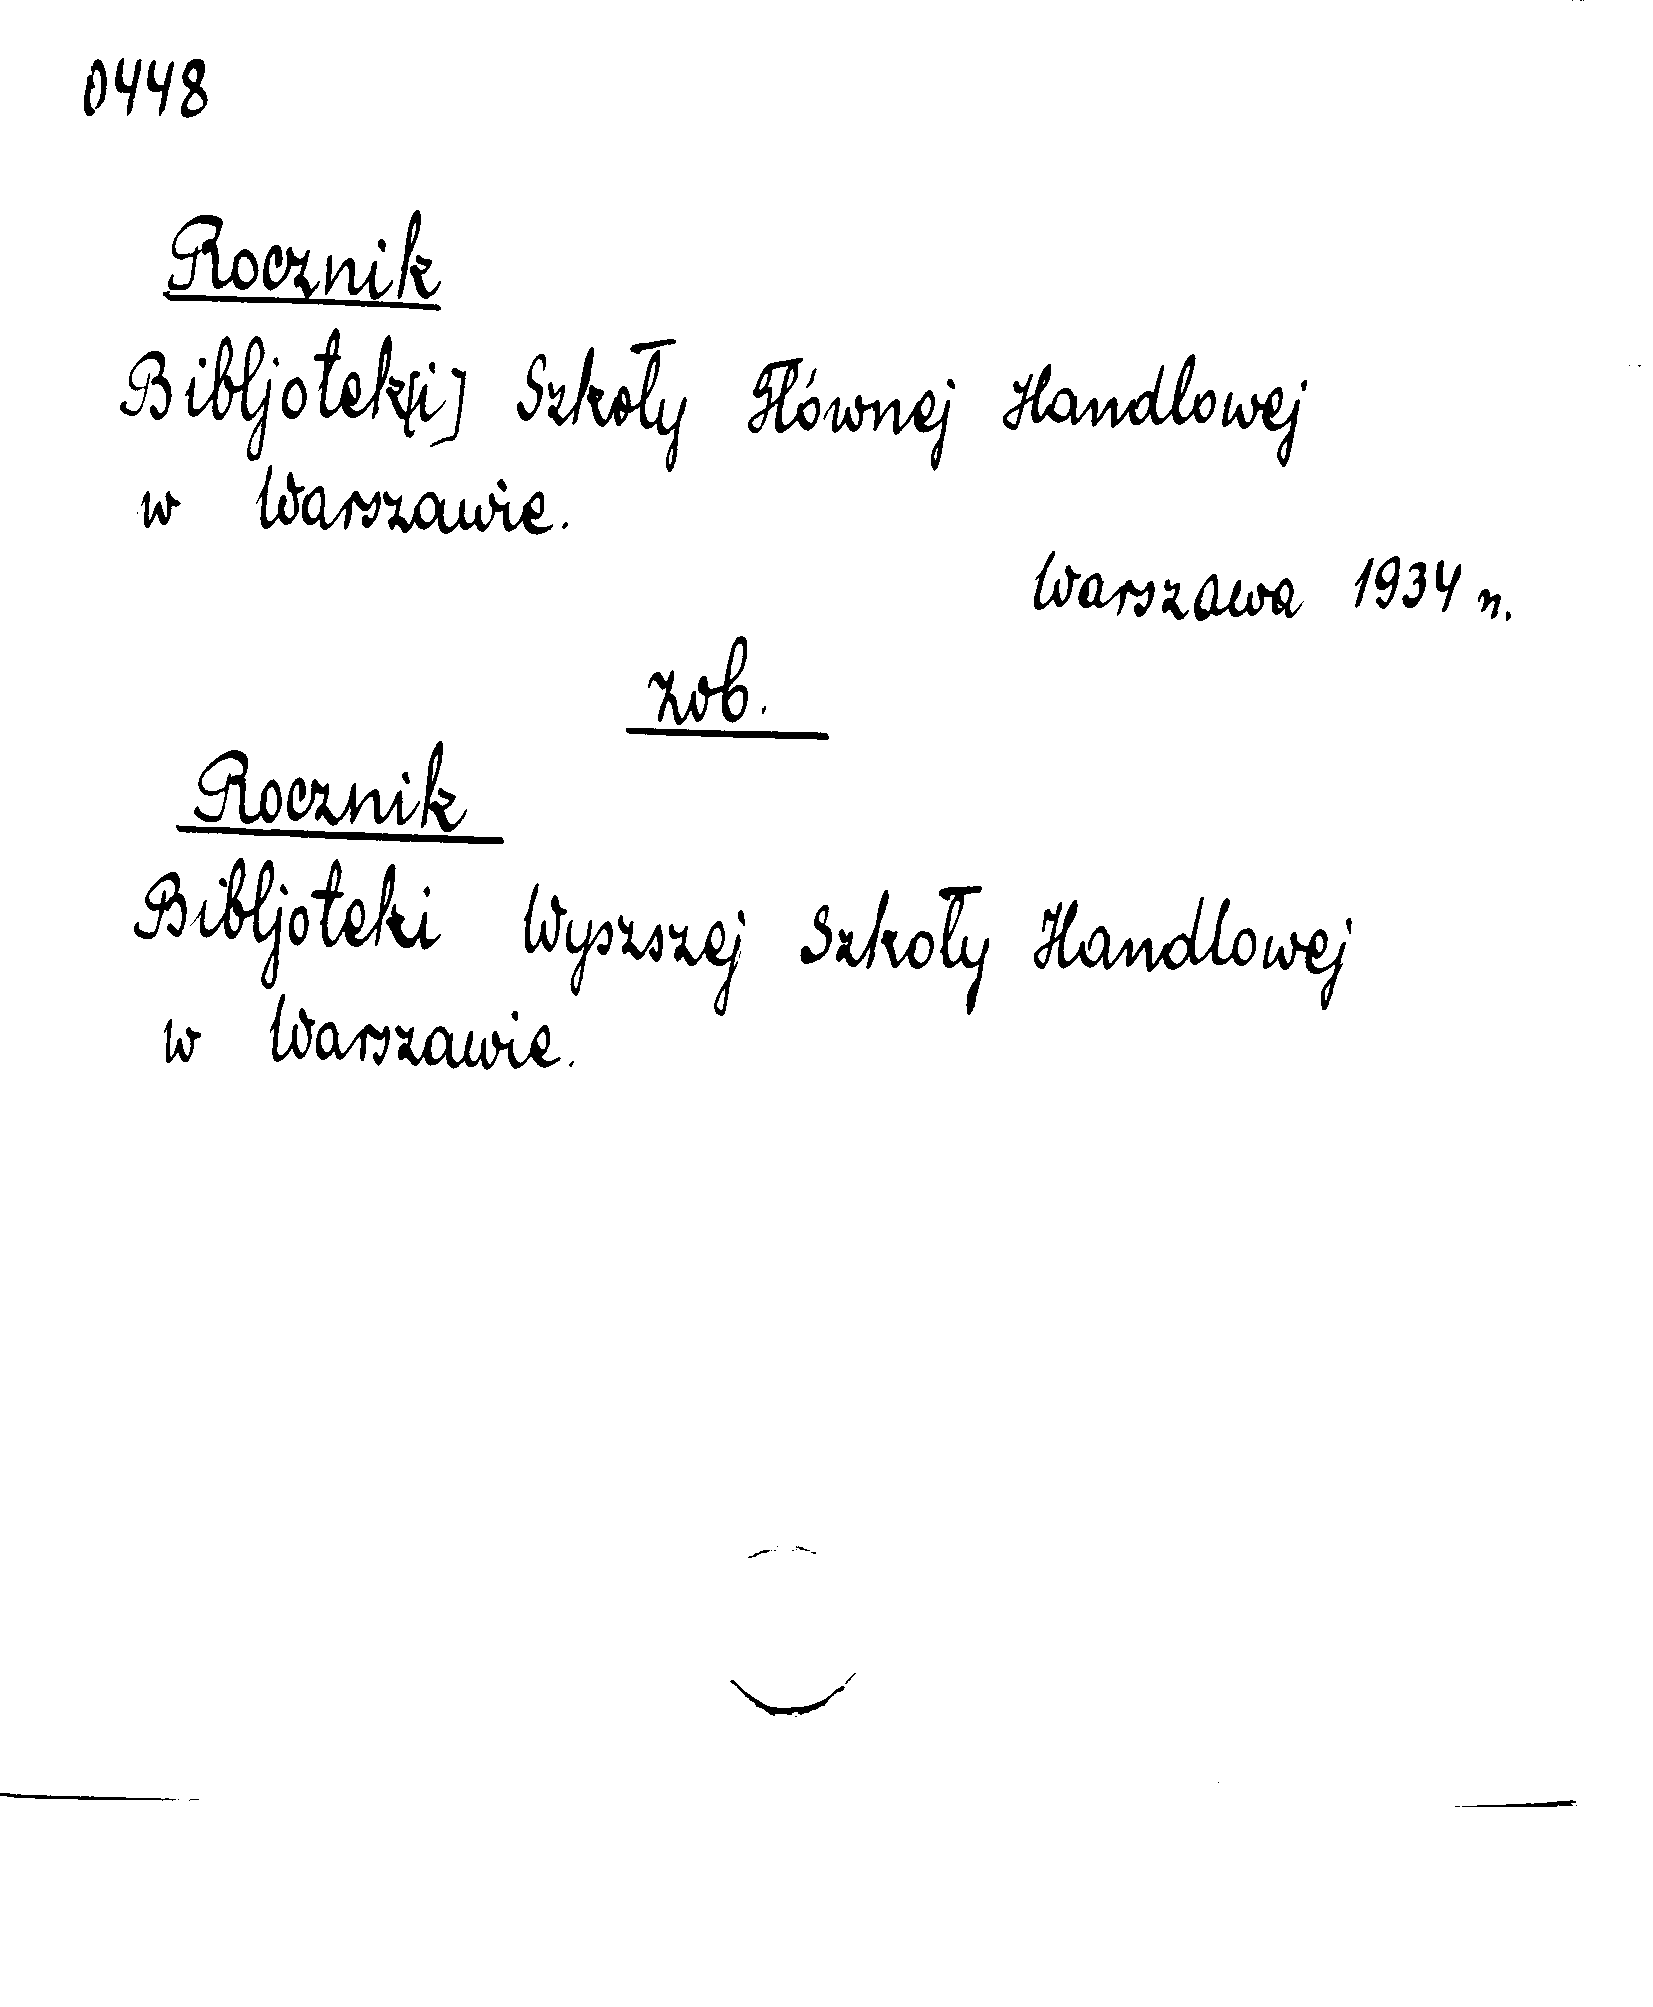 0448
Rocznik
Bibljotek[i] Szkoły Głównej Handlowej
w Warszawie.
Warszawa 1934 r.
zob.
Rocznik
Bibljoteki Wyższej Szkoły Handlowej
w Warszawie.